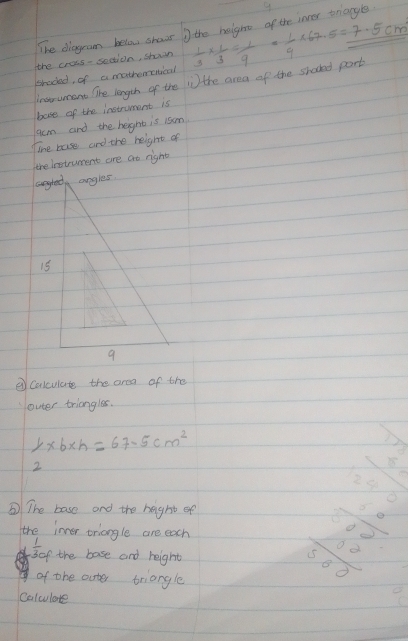 The diagram below shows
the cross-section, shown
shaded, of a mathematical
instrument. The length of the
base of the instrument is
9cm and the height is 15cm.
The base and the height of
the instrument are at right
angled angles.
15
9
a) Calculate the area of the
outer triangles.
1/2 x b x h = 67.5 cm²
b) The base and the height of
the inner triangle are each
1/3 of the base and height
of the outer triangle
Calculate
i) the height of the inner triangle
1/3 x 1/3 = 1/9 = 1/9 x 67.5 = 7.5 cm
ii) the area of the shaded part